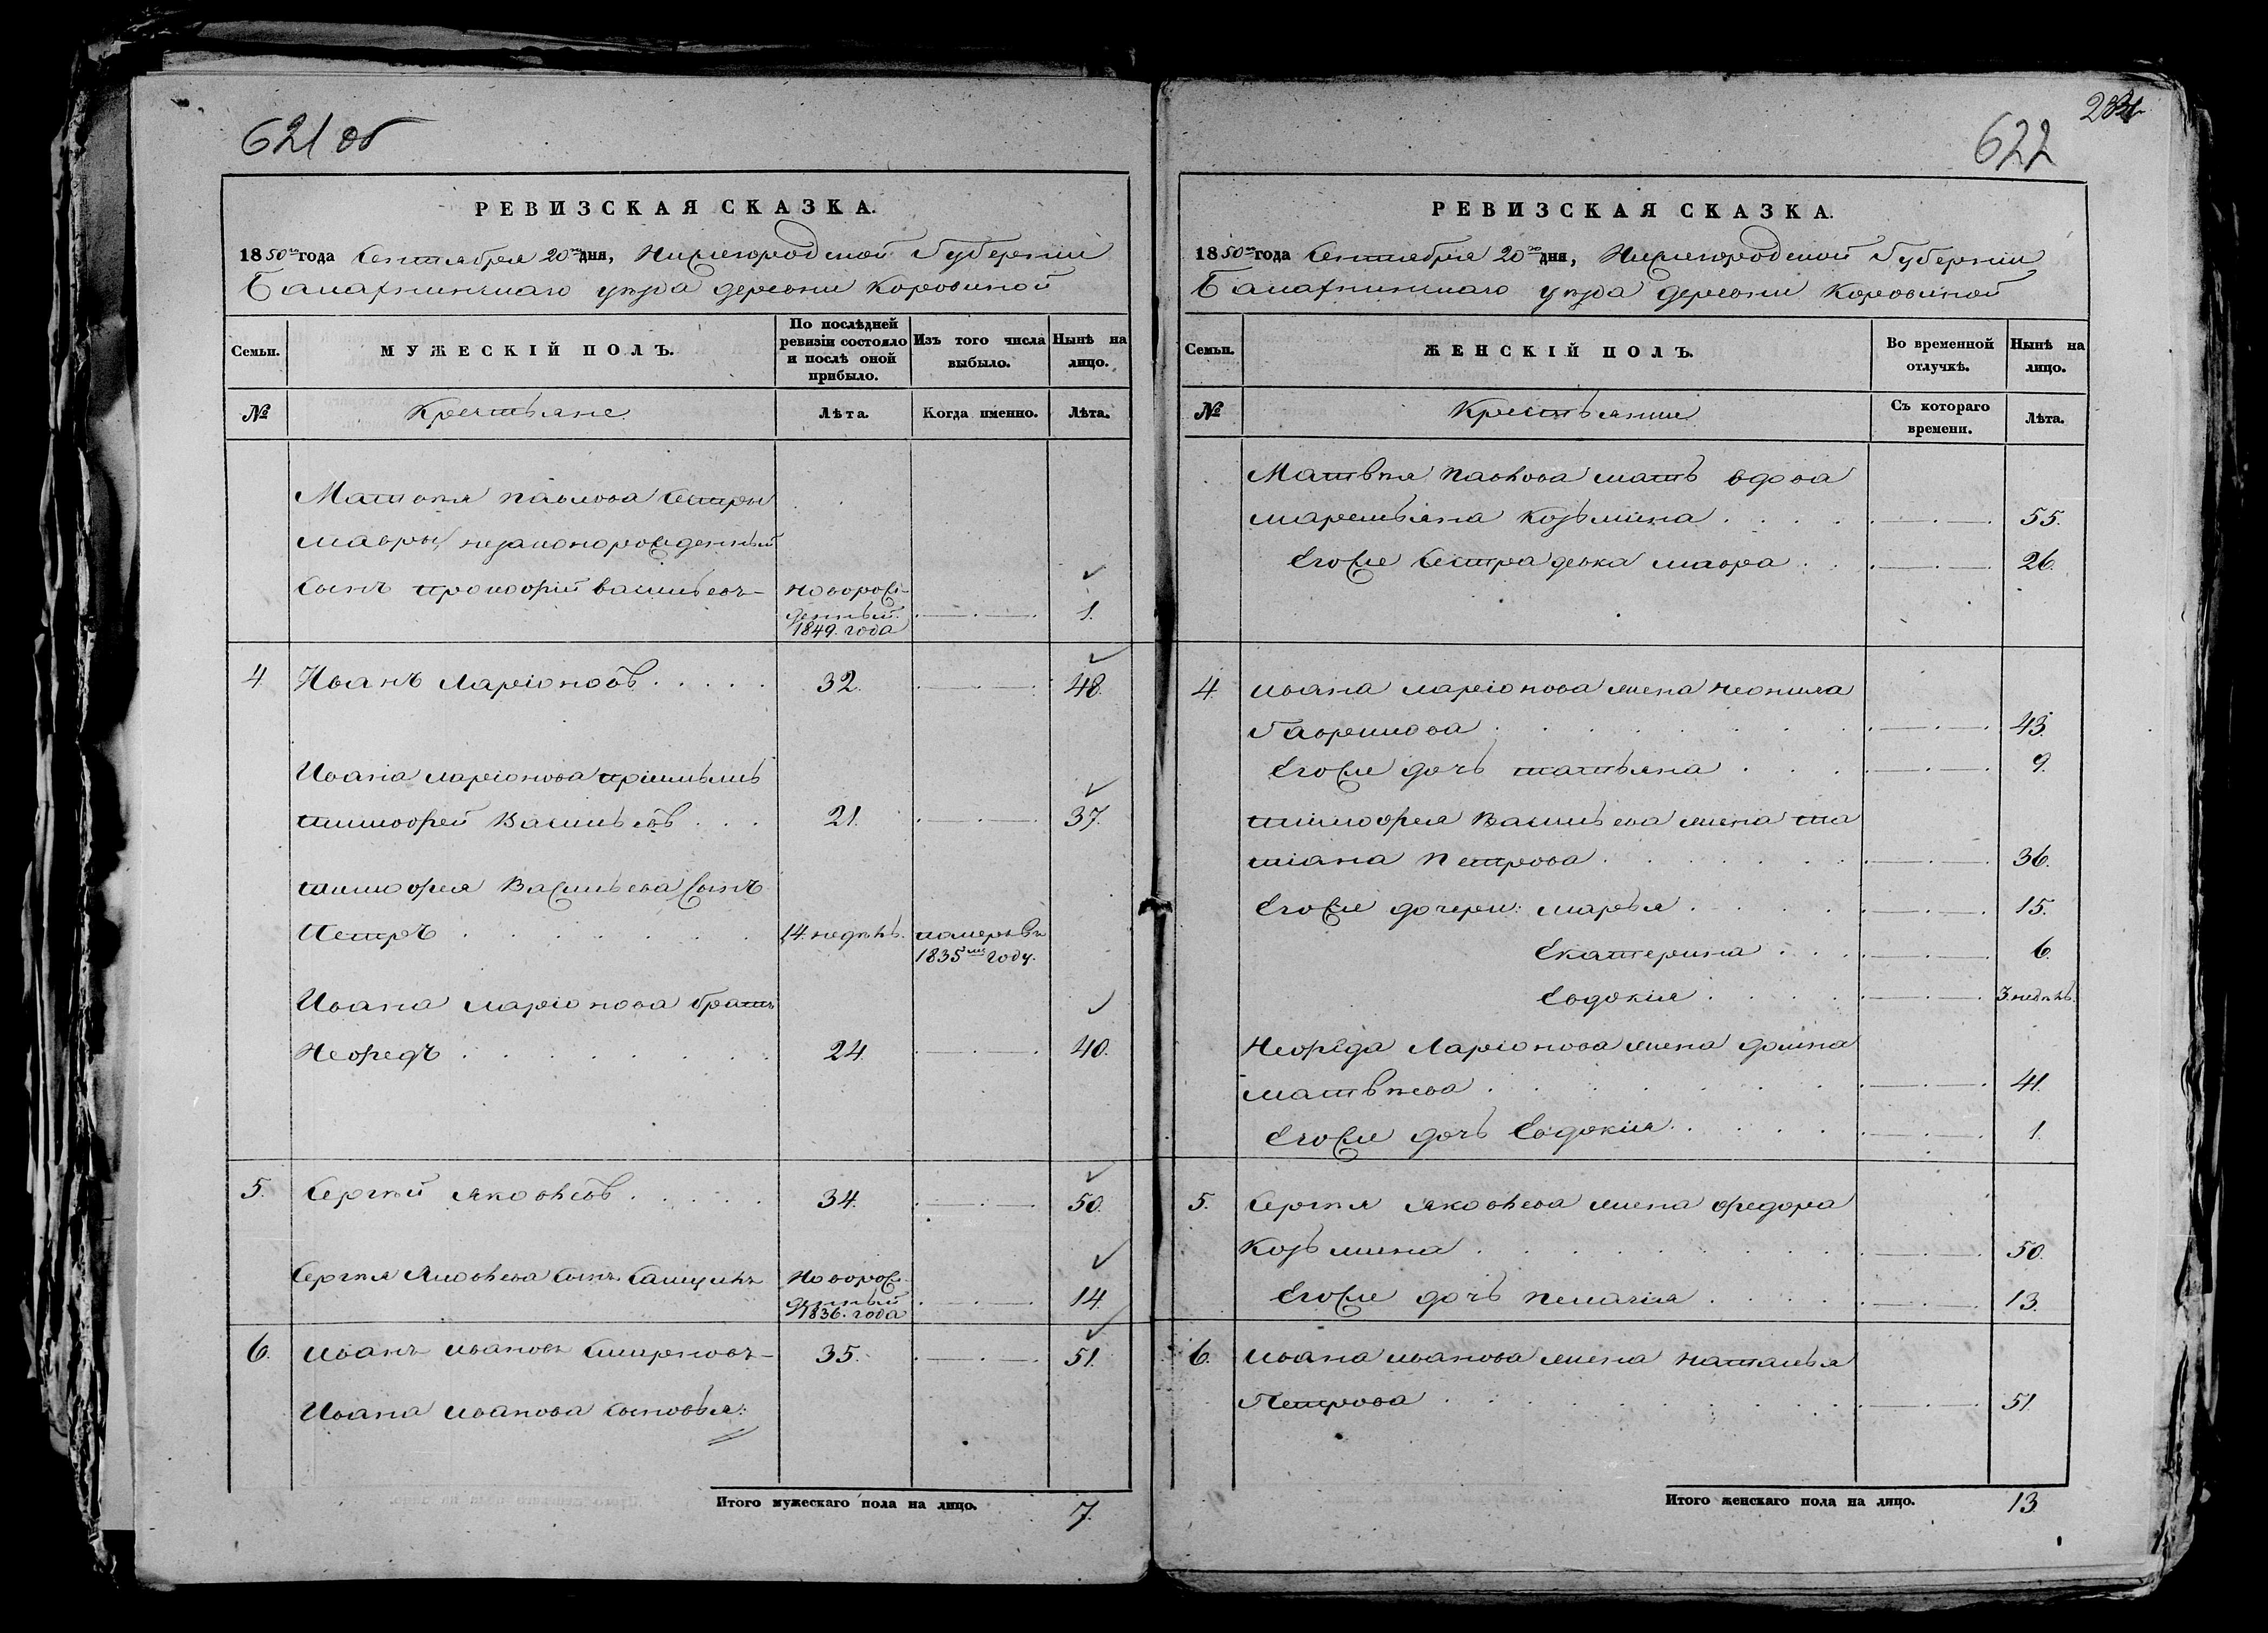 621 об
РЕВИЗСКАЯ СКАЗКА.
1850го года Сентября 20го дня, Нижегородской Губернии
Балахнинскаго уѣзда деревни Коровиной
Семьи.
МУЖЕСКІЙ ПОЛЪ.
По послѣдней ревизіи состояло и послѣ оной прибыло.
Изъ того числа выбыло.
Нынѣ на лицо.
№
Крестьяне
Лѣта.
Когда именно.
Лѣта.
Матвѣя Павлова сестры
Мавры, незаконорожденный
сынъ Прокофій Васильевъ новорож-
денный 1849. года 1.
4. Иванъ Ларіоновъ 32. 48.
Ивана Ларіонова пріимышъ
Тимофей Васильевъ 21. 37.
Тимофея Васильева сынъ
Петръ 14. недѣль. померъ въ
1835мъ году.
Ивана Ларіонова братъ
Нефедъ 24. 40.
5. Сергѣй Яковлевъ 34. 50.
Сергѣя Яковлева сынъ новорож-
денный 1836. года 14.
6. Иванъ Ивановъ Смирновъ 35. 51.
Ивана Иванова сыновья:
Итого мужескаго пола на лицо. 7.
622
РЕВИЗСКАЯ СКАЗКА.
1850го года Сентября 20го дня, Нижегородской Губернии
Балахнинскаго уѣзда деревни Коровиной
Семьи.
ЖЕНСКІЙ ПОЛЪ.
Во временной отлучкѣ.
Нынѣ на лицо.
№
Крестьянки
Съ котораго времени.
Лѣта.
Матвѣя Павлова мать вдова
Маремьяна Козьмина 55.
Егоже сестра девка Мавра 26.
4. Ивана Ларіонова жена Неонила
Гаврилова 43.
Егоже дочь Татьяна 9.
Тимофея Васильева жена Та
тіана Петрова 36.
Егоже дочери: Марья 15.
Екатерина 6.
Евдокія 3. недѣль.
Нефеда Ларіонова жена Домна
Матвѣева 41.
Егоже дочь Евдокія 1.
5. Сергѣя Яковлева жена Федора
Козьмина 50.
Егоже дочь Пелагія 13.
6. Ивана Иванова жена Наталья
Петрова 51.
Итого женскаго пола на лицо. 13